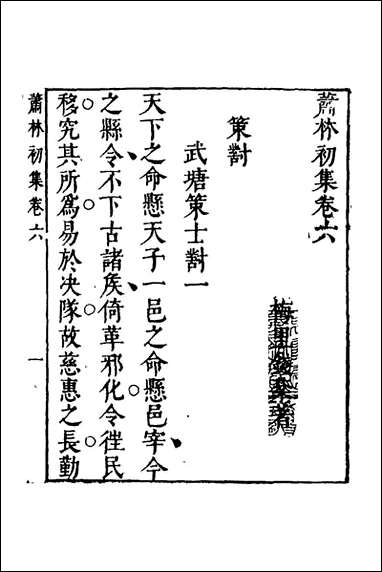 蕭林初集卷六
策對
武塘策士對一
天下之命懸天子一邑之命懸邑宰今
之縣令不下古諸矦倚革邪化令徃民
移究其所為易於决隊故慈惠之長勤
蕭林初集卷六
一